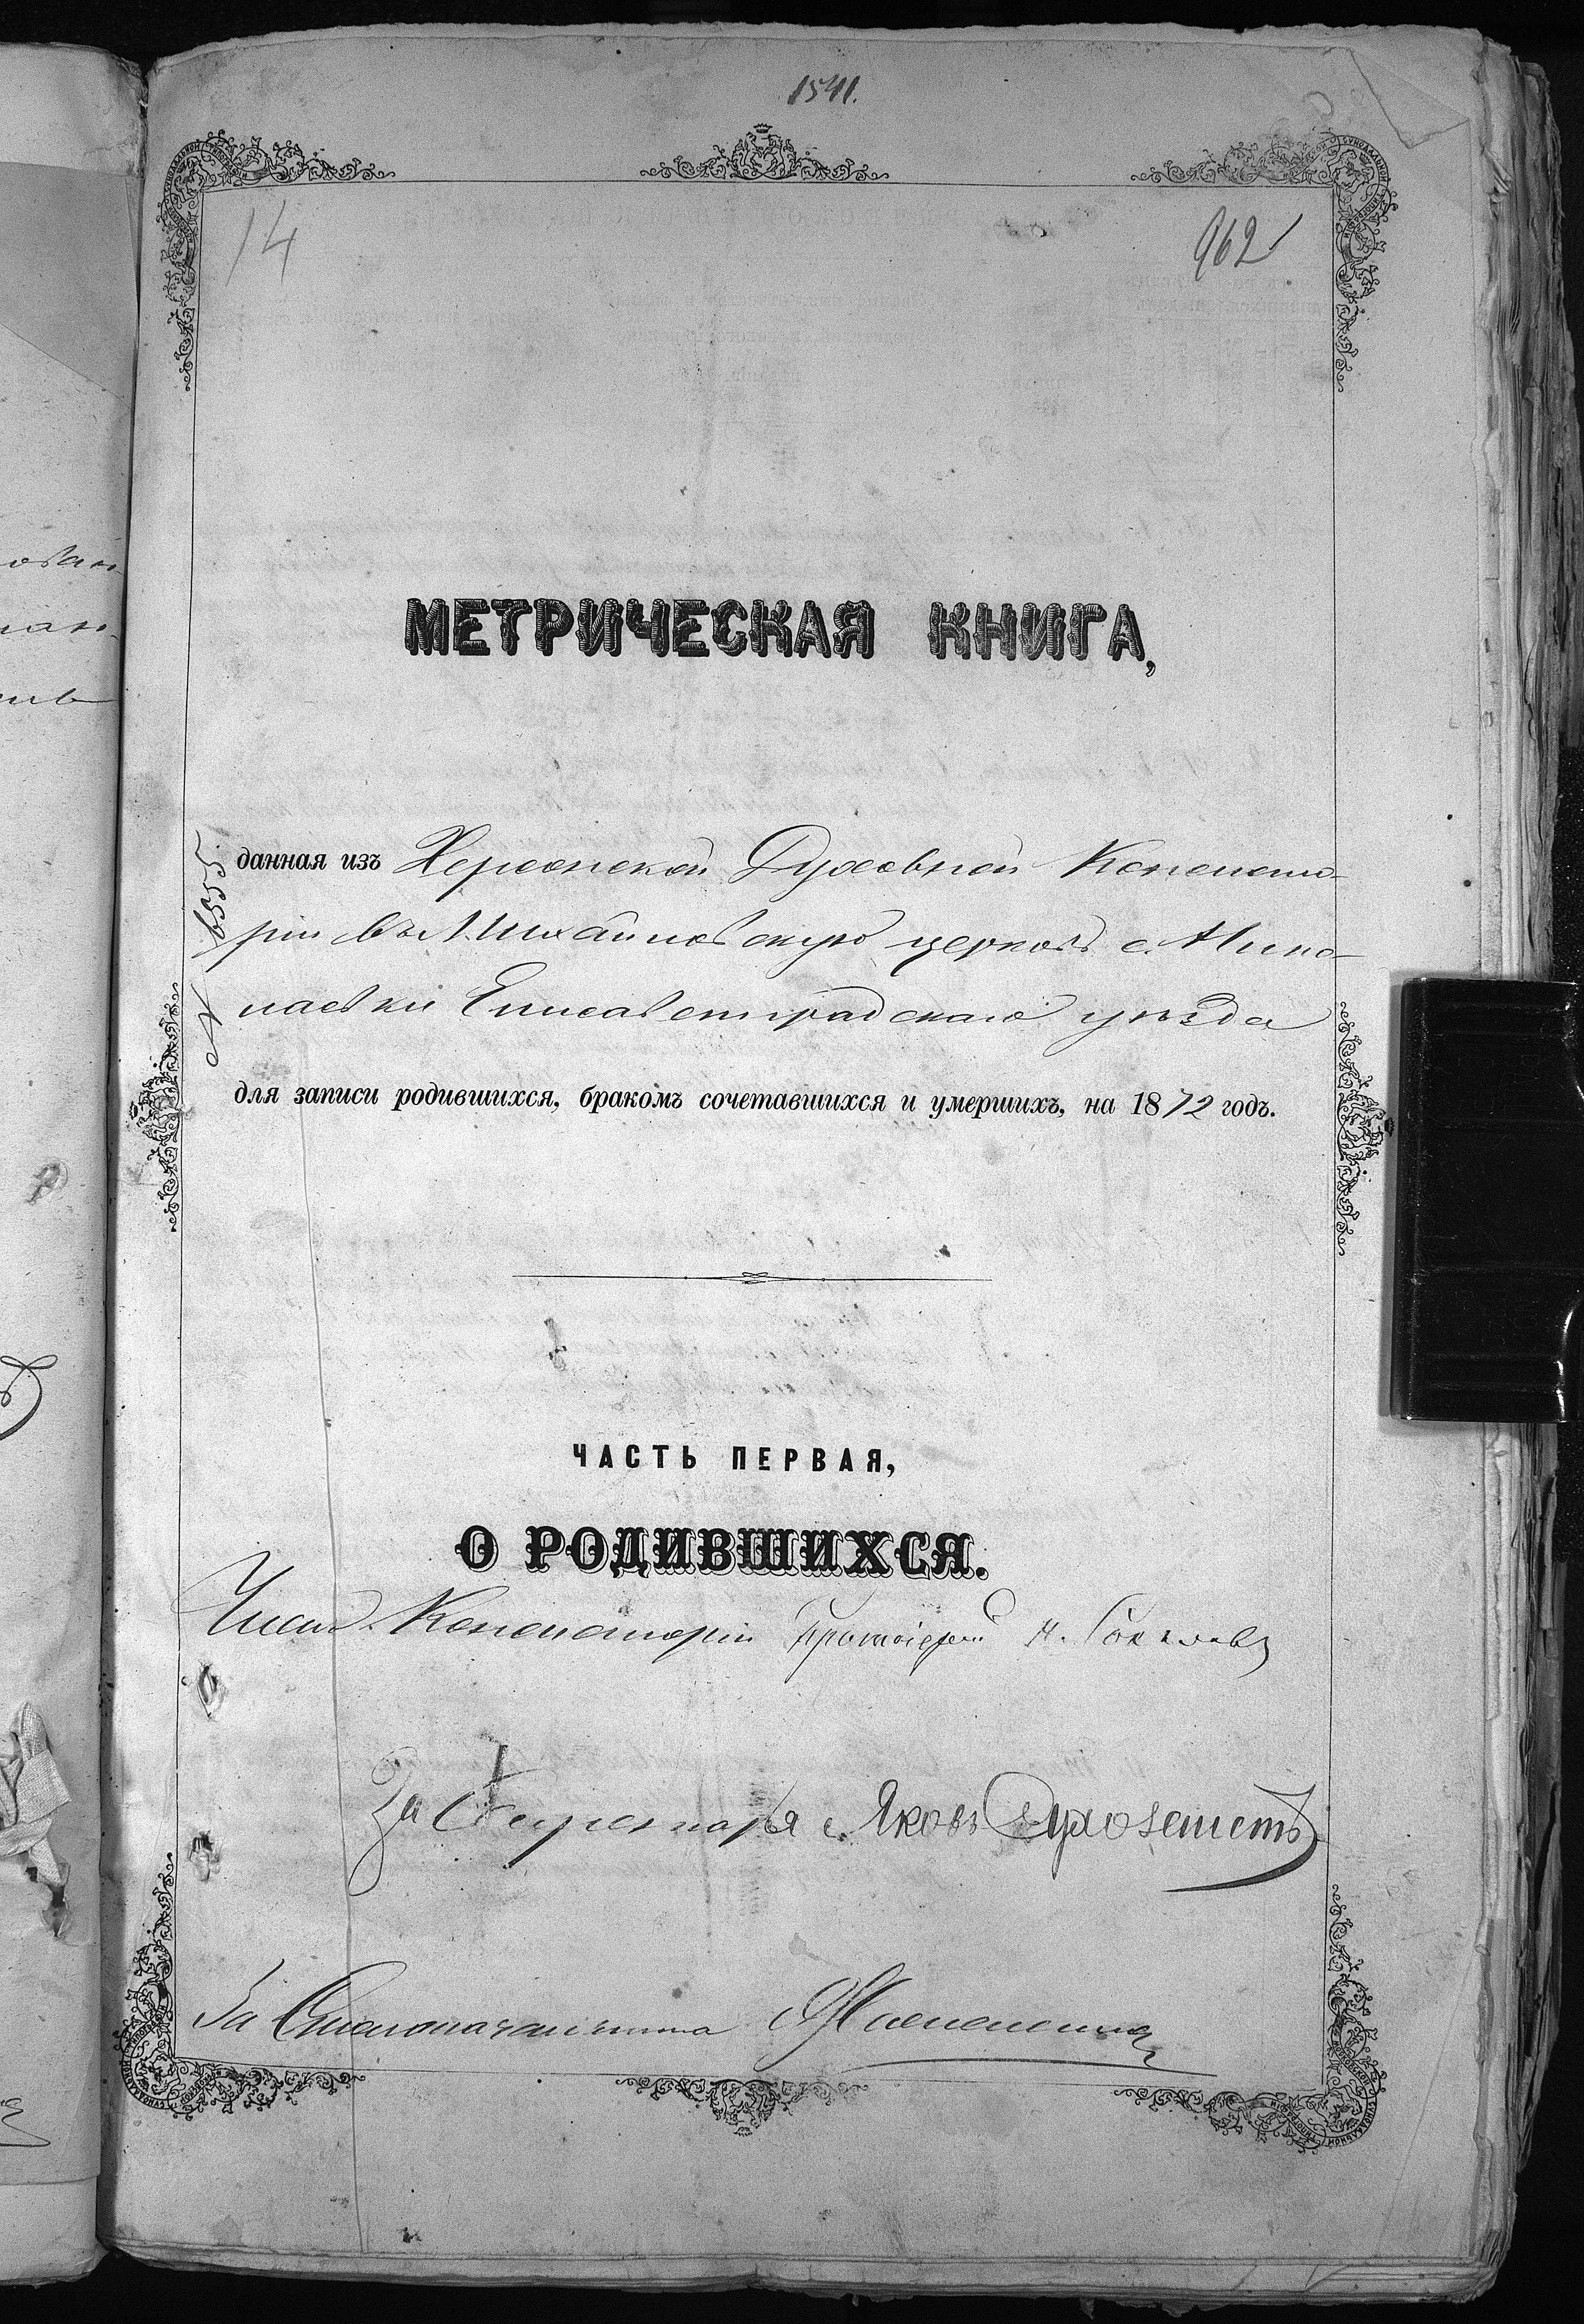 1541.
14
962
МЕТРИЧЕСКАЯ КНИГА,
№ 6555
данная изъ Херсонской Духовной Консисто-
ріи въ Михайловскую церковь с. Нико-
лаевки Елисаветградскаго уѣзда
для записи родившихся, бракомъ сочетавшихся и умершихъ, на 1872 годъ.
ЧАСТЬ ПЕРВАЯ,
О РОДИВШИХСЯ.
Членъ Консисторіи Протоіерей Н. Соколовъ
За Секретаря Яковъ
За Столоначальника